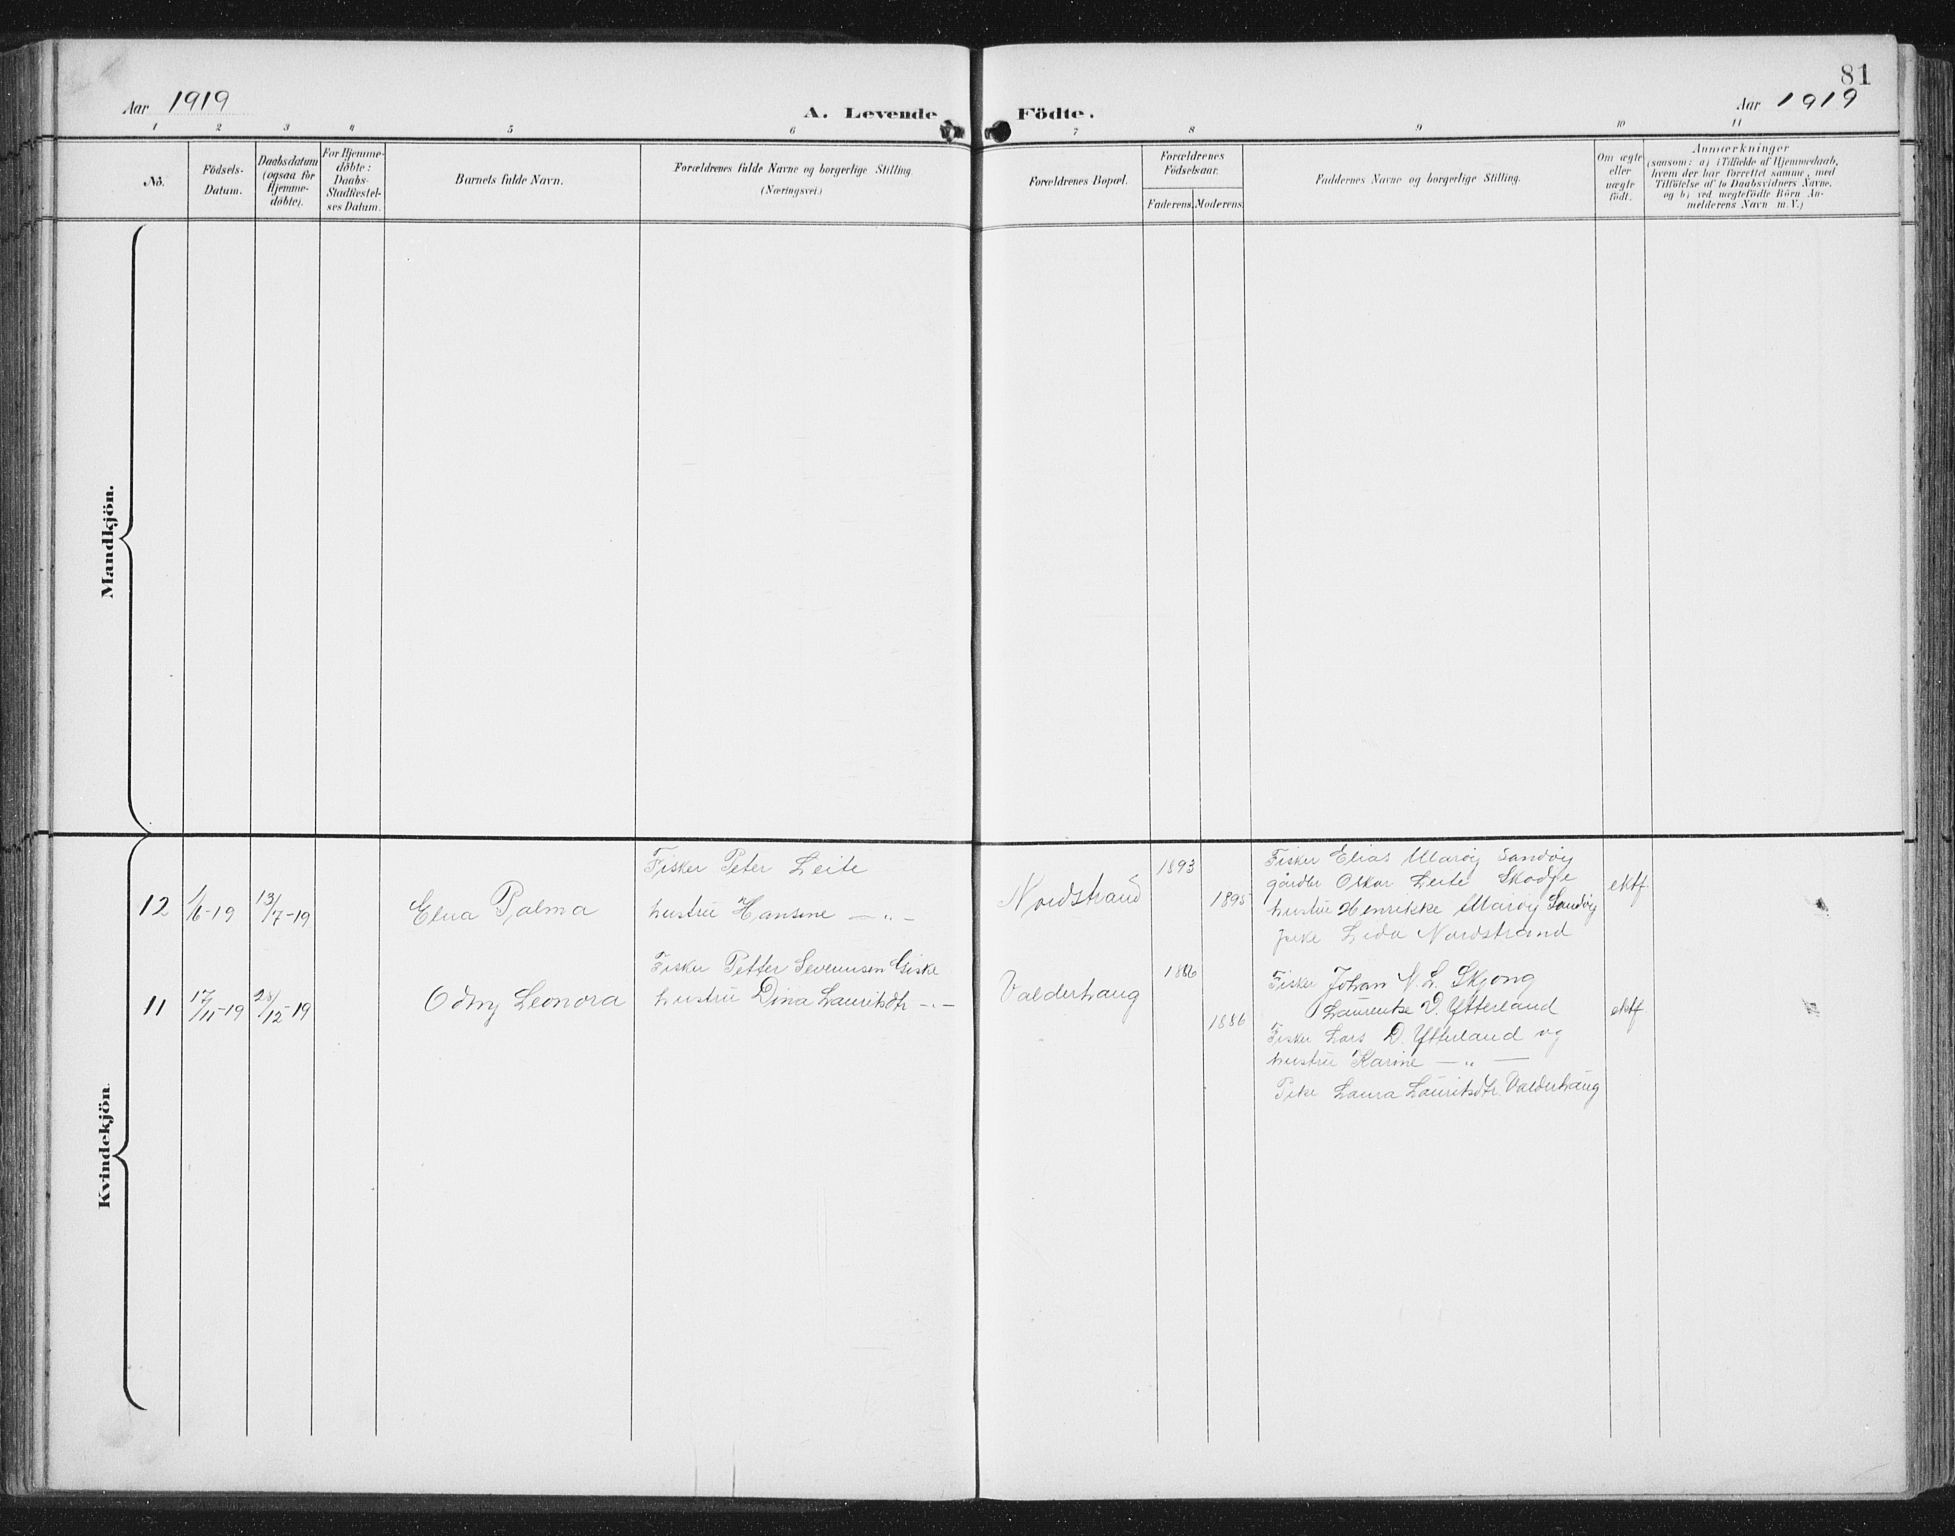 81
Aar 1919
A. Levende
Födte.
Aar 1919
1 2 3 4 5 6 7 8 9 10 11
No.
Födsels-
Datum.
Daabsdatum
(ogsaa for
Hjemme-
døbte).
For Hjemme-
døbte:
Daabs-
Stadfæstel-
ses Datum.
Barnets fulde Navn.
Forældrenes fulde Navne og borgerlige Stilling
(Næringsvei.)
Forældrenes Bopæl.
Forældrenes
Födselsaar.
Faderens. Moderens.
Faddernes Navne og borgerlige Stilling.
Om ægte
eller
uægte
født.
Anmærkninger
(saasom: a) i Tilfælde af Hjemmedaab,
hvem der har forrettet samme, med
Tilføielse af to Daabsvidners Navne,
og b) ved uægtefødte Börn An-
melderens Navn m. V.)
Mandkjön.
Kvindekjön.
12
1/6-19
13/7-19
Elna Palma
Fisker Peter Leite
hustru Hansine — „ —
Nordstrand
1893
1895
Fisker Elias Marøy Sandøy
gårdbr Oskar Leite Skodje
hustru Henrikke Marøy Sandøy
pike Lida Nordstrand
ektf
11
17/11-19
28/12-19
Odny Leonora
Fisker Petter Severinsen Giske
hustru Dina Lauritsdtr — „ —
Valderhaug
1886
1886
Fisker Johan N. L. Skjong
Laurentse D. Ytterland
Fisker Lars D. Ytterland og
hustru Karine — „ —
Pike Laura Lauritsdtr. Valderhaug
ektf